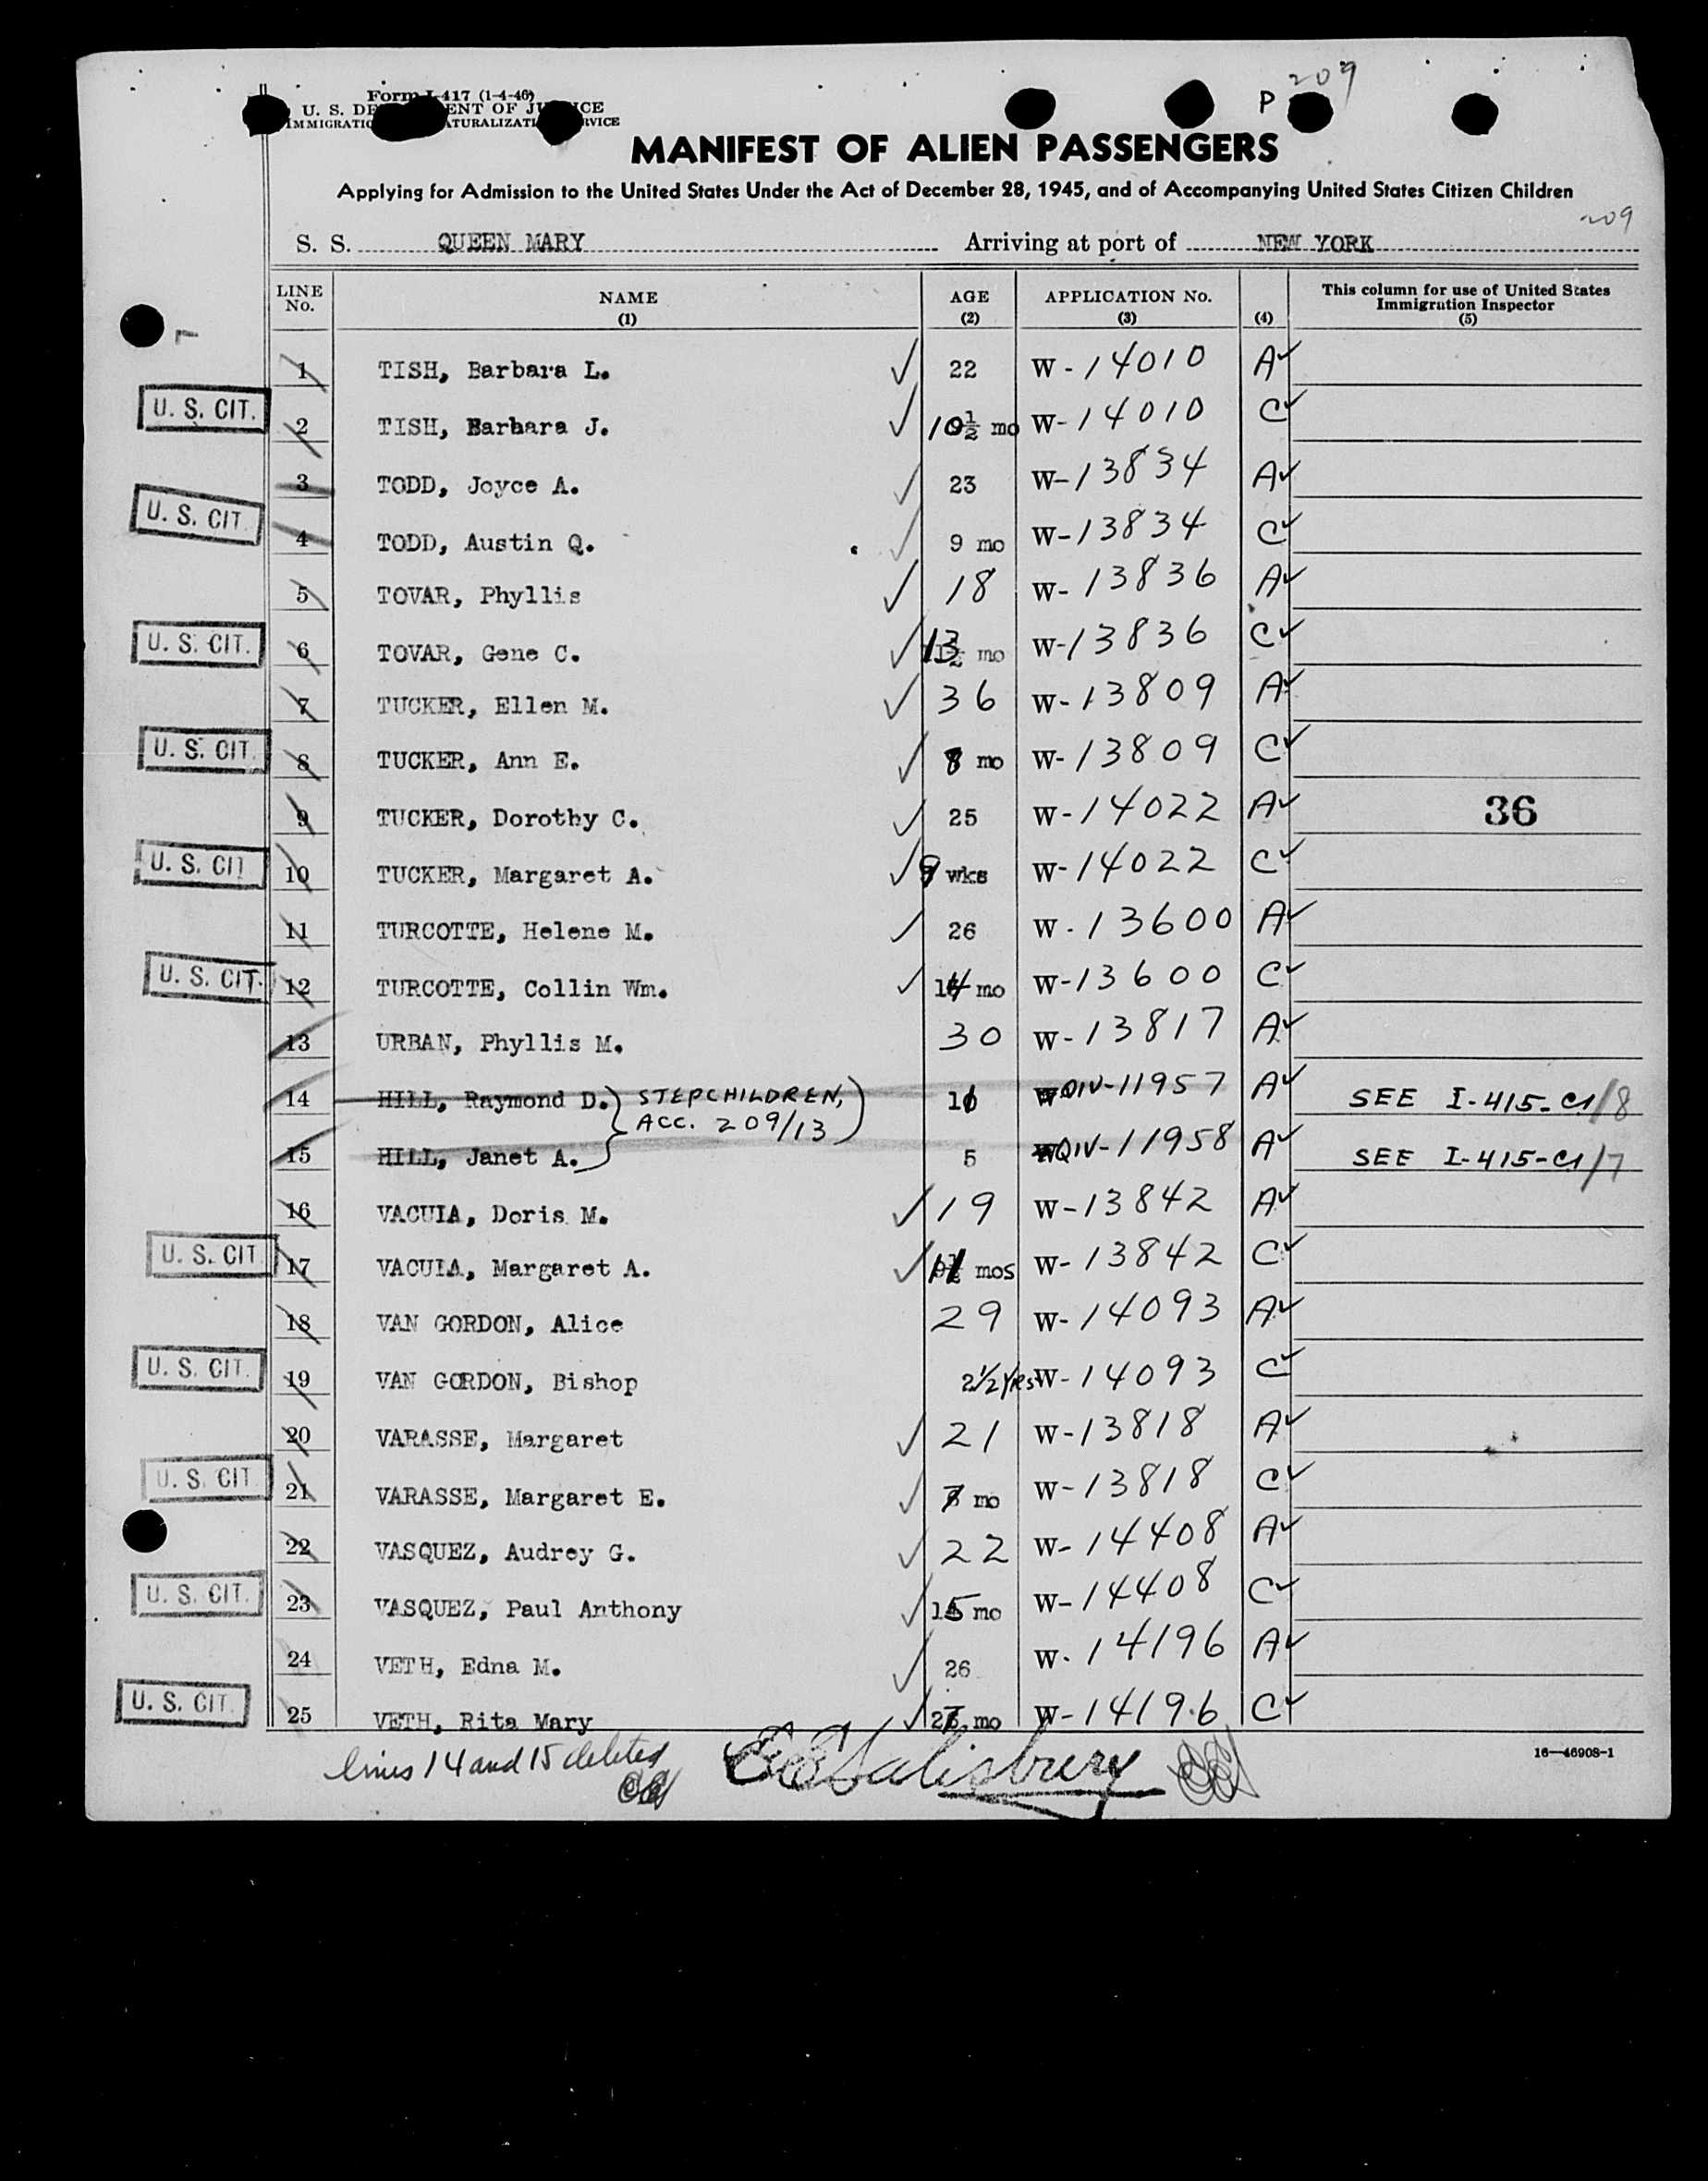 209
P
Form I-417 (1-4-46)
U. S. DE ENT OF JU ICE
IMMIGRATIO ATURALIZATI RVICE
MANIFEST OF ALIEN PASSENGERS
Applying for Admission to the United States Under the Act of December 28, 1945, and of Accompanying United States Citizen Children
209
S. S. QUEEN MARY Arriving at port of NEW YORK
LINE No. NAME (1) AGE (2) APPLICATION No. (3) (4) This column for use of United States Immigration Inspector (5)
1 TISH, Barbara L. ✓ 22 W-14010 A✓
U. S. CIT. 2 TISH, Barbara J. ✓ 10½ mo W-14010 C✓
3 TODD, Joyce A. ✓ 23 W-13834 A✓
U. S. CIT. 4 TODD, Austin Q. ✓ 9 mo W-13834 C✓
5 TOVAR, Phyllis ✓ 18 W-13836 A✓
U. S. CIT. 6 TOVAR, Gene C. ✓ 13 mo W-13836 C✓
7 TUCKER, Ellen M. ✓ 36 W-13809 A✓
U. S. CIT. 8 TUCKER, Ann E. ✓ 8 mo W-13809 C✓
9 TUCKER, Dorothy C. ✓ 25 W-14022 A✓ 36
U. S. CIT 10 TUCKER, Margaret A. ✓ 9 wks W-14022 C✓
11 TURCOTTE, Helene M. ✓ 26 W-13600 A✓
U. S. CIT. 12 TURCOTTE, Collin Wm. ✓ 14 mo W-13600 C✓
13 URBAN, Phyllis M. 30 W-13817 A✓
14 HILL, Raymond D. STEPCHILDREN, QIV-11957 A✓ SEE I-415-C1/8
ACC. 209/13
15 HILL, Janet A. 5 QIV-11958 A✓ SEE I-415-C1/7
16 VACUIA, Doris M. ✓ 19 W-13842 A✓
U. S. CIT 17 VACUIA, Margaret A. ✓ 11 mos W-13842 C✓
18 VAN GORDON, Alice 29 W-14093 A✓
U. S. CIT. 19 VAN GORDON, Bishop 2½ YRS W-14093 C✓
20 VARASSE, Margaret ✓ 21 W-13818 A✓
U. S. CIT. 21 VARASSE, Margaret E. ✓ mo W-13818 C✓
22 VASQUEZ, Audrey G. ✓ 22 W-14408 A✓
U. S. CIT. 23 VASQUEZ, Paul Anthony ✓ 15 mo W-14408 C✓
24 VETH, Edna M. ✓ 26 W-14196 A✓
U. S. CIT. 25 VETH, Rita Mary ✓ 27 mo W-14196 C✓
lines 14 and 15 deleted
EESalisbury
16—46908-1